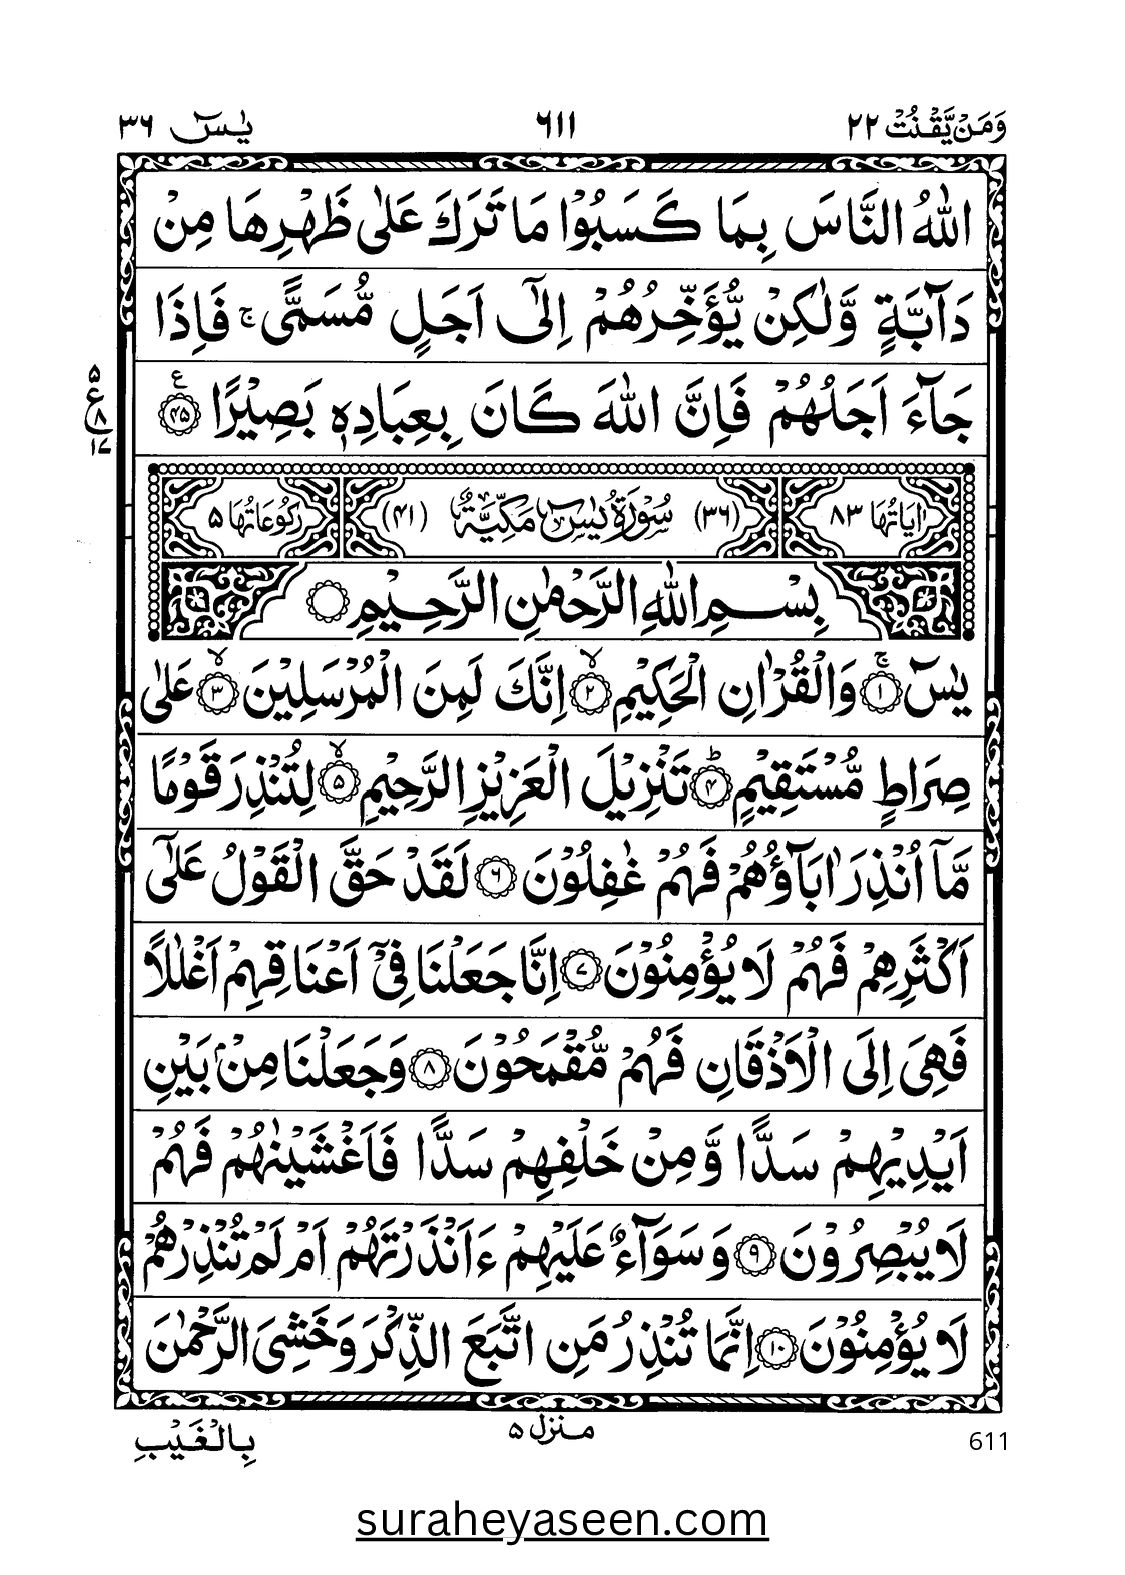 وَمَنْ يَّقْنُتْ ٢٢ ٦١١ يٰسٓ ٣٦
اللّٰهُ النَّاسَ بِمَا كَسَبُوْا مَا تَرَكَ عَلٰى ظَهْرِهَا مِنْ
دَآبَّةٍ وَّلٰكِنْ يُّؤَخِّرُهُمْ اِلٰٓى اَجَلٍ مُّسَمًّى ۚ فَاِذَا
جَآءَ اَجَلُهُمْ فَاِنَّ اللّٰهَ كَانَ بِعِبَادِهٖ بَصِيْرًا ﴿۴۵﴾ ع
۵
ع
٨
١٧
اٰيَاتُهَا ٨٣ (٣٦) سُوْرَةُ يٰسٓ مَكِّيَّةٌ (۴۱) رُكُوْعَاتُهَا ۵
بِسْمِ اللّٰهِ الرَّحْمٰنِ الرَّحِيْمِ
يٰسٓ ۚ﴿۱﴾ وَالْقُرْاٰنِ الْحَكِيْمِ ۙ﴿۲﴾ اِنَّكَ لَمِنَ الْمُرْسَلِيْنَ ۙ﴿۳﴾ عَلٰى
صِرَاطٍ مُّسْتَقِيْمٍ ؕ﴿۴﴾ تَنْزِيْلَ الْعَزِيْزِ الرَّحِيْمِ ۙ﴿۵﴾ لِتُنْذِرَ قَوْمًا
مَّاۤ اُنْذِرَ اٰبَآؤُهُمْ فَهُمْ غٰفِلُوْنَ ﴿۶﴾ لَقَدْ حَقَّ الْقَوْلُ عَلٰٓى
اَكْثَرِهِمْ فَهُمْ لَا يُؤْمِنُوْنَ ﴿۷﴾ اِنَّا جَعَلْنَا فِيْٓ اَعْنَاقِهِمْ اَغْلٰلًا
فَهِيَ اِلَى الْاَذْقَانِ فَهُمْ مُّقْمَحُوْنَ ﴿۸﴾ وَجَعَلْنَا مِنْۢ بَيْنِ
اَيْدِيْهِمْ سَدًّا وَّمِنْ خَلْفِهِمْ سَدًّا فَاَغْشَيْنٰهُمْ فَهُمْ
لَا يُبْصِرُوْنَ ﴿۹﴾ وَسَوَآءٌ عَلَيْهِمْ ءَاَنْذَرْتَهُمْ اَمْ لَمْ تُنْذِرْهُمْ
لَا يُؤْمِنُوْنَ ﴿۱۰﴾ اِنَّمَا تُنْذِرُ مَنِ اتَّبَعَ الذِّكْرَ وَخَشِيَ الرَّحْمٰنَ
منزل ۵
بِالْغَيْبِ
611
suraheyaseen.com